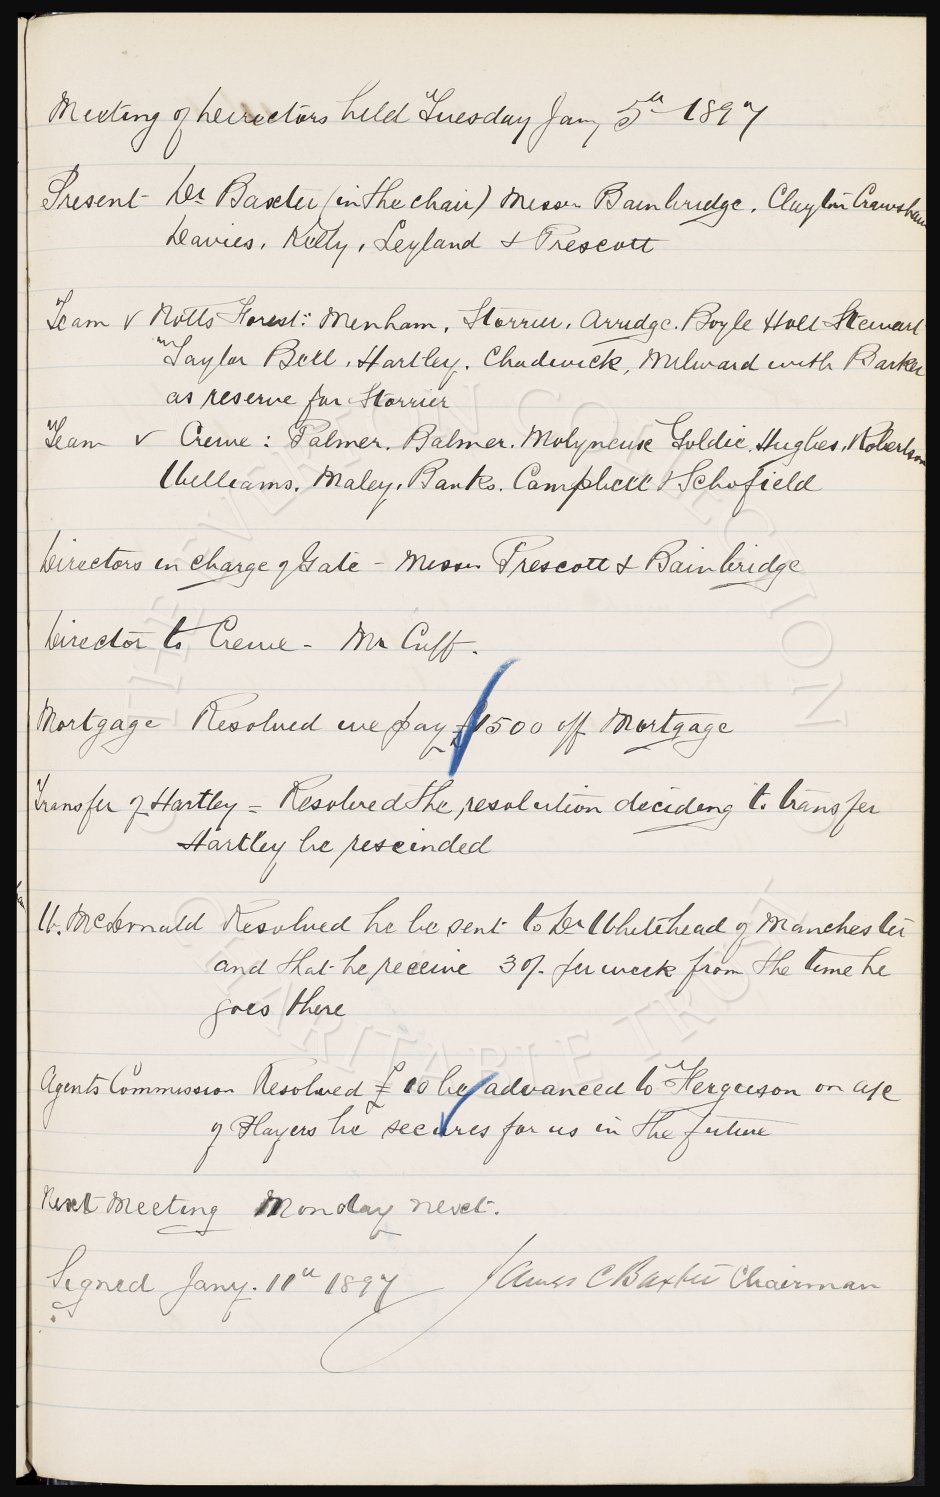 Meeting of Directors held Tuesday Jany 5th 1897
Present Dr Baxter (in the chair) Messrs Bainbridge, Clayton Crawshaw
Davies, Kelly, Leyland & Prescott
Team v Notts Forest: Menham, Storrier, Arridge. Boyle Holt Stewart
Taylor Bell, Hartley, Chadwick, Milward with Barker
as reserve for Storrier
Team v Crewe: Palmer, Balmer, Molyneux Goldie, Hughes, Robertson
Williams, Maley, Banks, Campbell & Schofield
Directors in charge of Gate - Messrs Prescott & Bainbridge
Director to Crewe - Mr Cuff.
Mortgage Resolved we pay £1500 off Mortgage
Transfer of Hartley = Resolved the resolution deciding to transfer
Hartley be rescinded
W. McDonald Resolved he be sent to Dr Whitehead of Manchester
and that he receive 30/- per week from the time he
goes there
Agents Commission Resolved £10 be advanced to Ferguson on a/c
of Players he secures for us in the future
Next Meeting Monday next.
Signed Jany. 11th 1897 James C Baxter Chairman
THE EVERTON COLLECTION
CHARITABLE TRUST